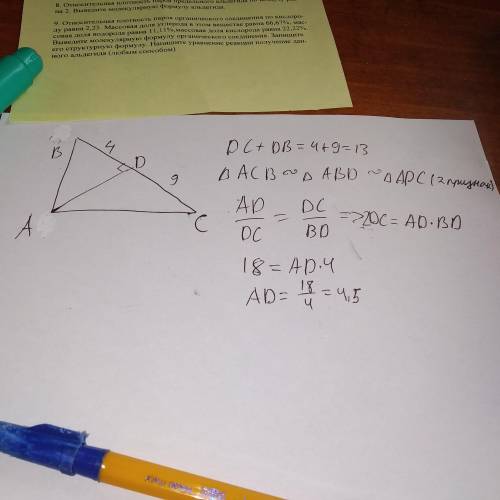 8. Относительная плотность паров предельного альдегида по
на 2. Выведите молекулярную формулу альдегида.
9. Относительная плотность паров органического соединения по кислоро-
ду равна 2,25. Массовая доля углерода в этом веществе равна 66,67%, мас-
совая доля водорода равна 11,11%, массовая доля кислорода равна 22,22%.
Выведите молекулярную формулу органического соединения. Запишите
его структурную формулу. Напишите уравнение реакции получение дан-
ного альдегида (любым способом)
B 4 D 9
A C
DC + DB = 4+9=13
△ ACB ∾ △ ABD ∾ △ ADC (2 признак)
AD/DC = DC/BD => 2DC = AD·BD
18 = AD·4
AD = 18/4 = 4,5